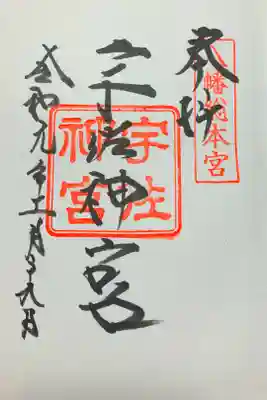 八幡総本宮
奉拝
宇佐神宮
宇佐神宮
令和元年 月 九日